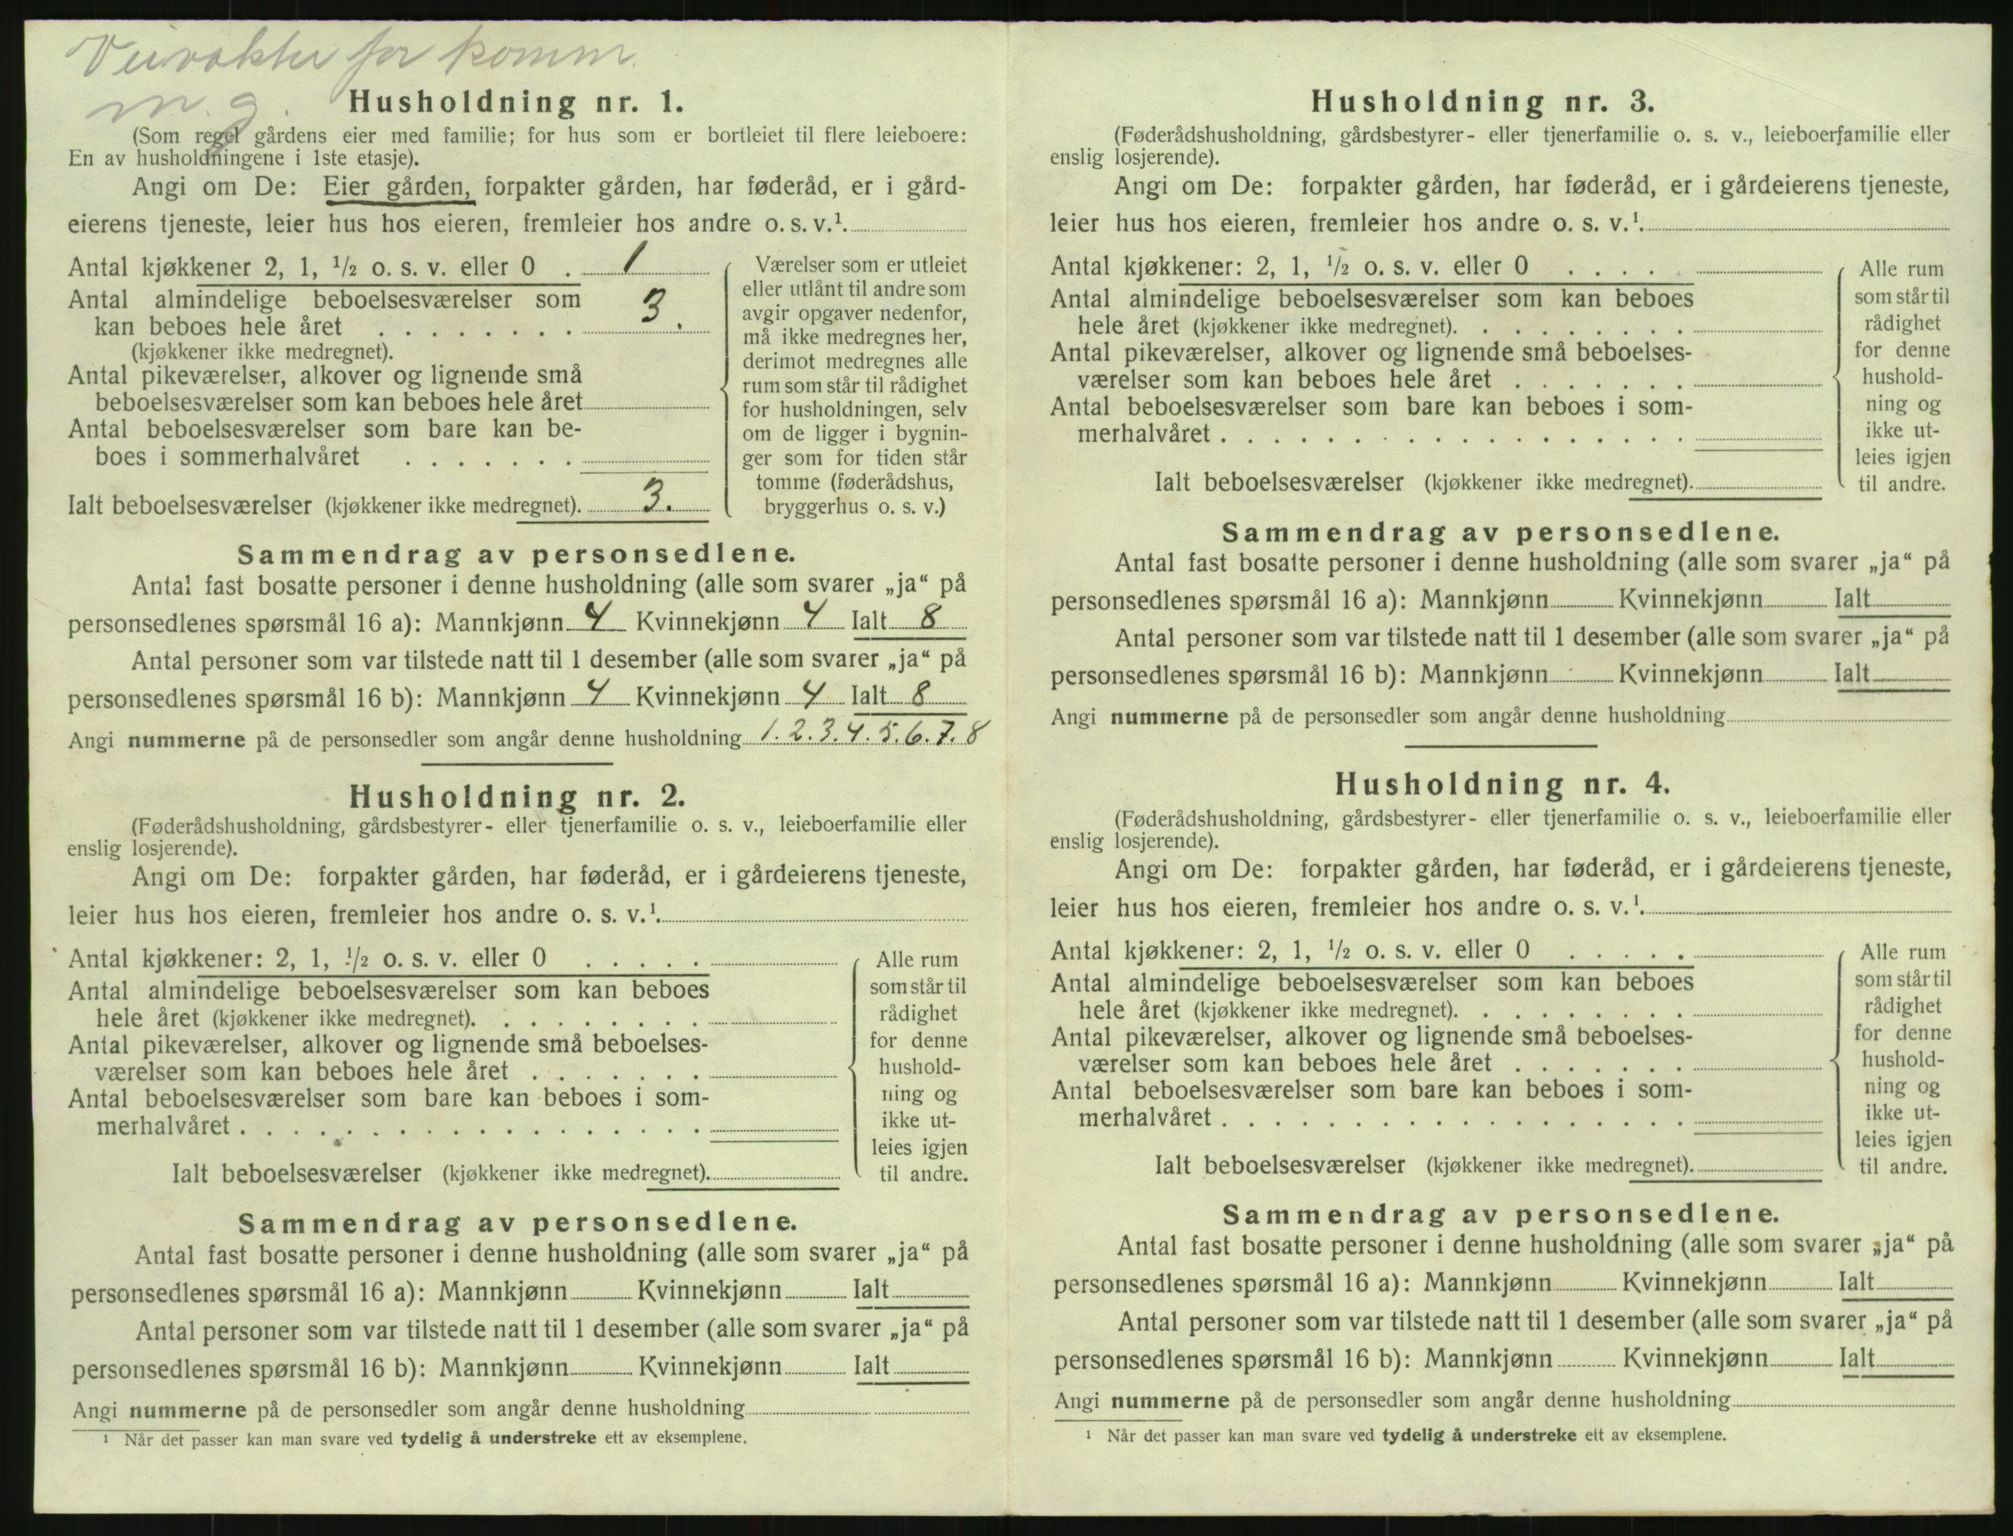 Veivokter for komm.
m. g.
Husholdning nr. 1.
(Som regel gårdens eier med familie; for hus som er bortleiet til flere leieboere:
En av husholdningene i 1ste etasje).
Angi om De: Eier gården, forpakter gården, har føderåd, er i gård-
eierens tjeneste, leier hus hos eieren, fremleier hos andre o. s. v.¹
Antal kjøkkener 2, 1, ½ o. s. v. eller 0 . 1
Antal almindelige beboelsesværelser som
kan beboes hele året . . . . . . . . 3.
(kjøkkener ikke medregnet).
Antal pikeværelser, alkover og lignende små
beboelsesværelser som kan beboes hele året
Antal beboelsesværelser som bare kan be-
boes i sommerhalvåret . . . . . . .
Ialt beboelsesværelser (kjøkkener ikke medregnet). 3.
Værelser som er utleiet
eller utlånt til andre som
avgir opgaver nedenfor,
må ikke medregnes her,
derimot medregnes alle
rum som står til rådighet
for husholdningen, selv
om de ligger i bygnin-
ger som for tiden står
tomme (føderådshus,
bryggerhus o. s. v.)
Sammendrag av personsedlene.
Antal fast bosatte personer i denne husholdning (alle som svarer „ja“ på
personsedlenes spørsmål 16 a): Mannkjønn 4 Kvinnekjønn 4 Ialt 8
Antal personer som var tilstede natt til 1 desember (alle som svarer „ja“ på
personsedlenes spørsmål 16 b): Mannkjønn 4 Kvinnekjønn 4 Ialt 8
Angi nummerne på de personsedler som angår denne husholdning 1. 2. 3. 4. 5. 6. 7. 8
Husholdning nr. 2.
(Føderådshusholdning, gårdsbestyrer- eller tjenerfamilie o. s. v., leieboerfamilie eller
enslig losjerende).
Angi om De: forpakter gården, har føderåd, er i gårdeierens tjeneste,
leier hus hos eieren, fremleier hos andre o. s. v.¹
Antal kjøkkener: 2, 1, ½ o. s. v. eller 0 . . . . .
Antal almindelige beboelsesværelser som kan beboes
hele året (kjøkkener ikke medregnet). . . . . . . . .
Antal pikeværelser, alkover og lignende små beboelses-
værelser som kan beboes hele året . . . . . . .
Antal beboelsesværelser som bare kan beboes i som-
merhalvåret . . . . . . . . . . . . . . . . . .
Ialt beboelsesværelser (kjøkkener ikke medregnet).
Alle rum
som står til
rådighet
for denne
hushold-
ning og
ikke ut-
leies igjen
til andre.
Sammendrag av personsedlene.
Antal fast bosatte personer i denne husholdning (alle som svarer „ja“ på
personsedlenes spørsmål 16 a): Mannkjønn Kvinnekjønn Ialt
Antal personer som var tilstede natt til 1 desember (alle som svarer „ja“ på
personsedlenes spørsmål 16 b): Mannkjønn Kvinnekjønn Ialt
Angi nummerne på de personsedler som angår denne husholdning
¹ Når det passer kan man svare ved tydelig å understreke ett av eksemplene.
Husholdning nr. 3.
(Føderådshusholdning, gårdsbestyrer- eller tjenerfamilie o. s. v., leieboerfamilie eller
enslig losjerende).
Angi om De: forpakter gården, har føderåd, er i gårdeierens tjeneste,
leier hus hos eieren, fremleier hos andre o. s. v.¹
Antal kjøkkener: 2, 1, ½ o. s. v. eller 0 . . . .
Antal almindelige beboelsesværelser som kan beboes
hele året (kjøkkener ikke medregnet). . . . . . . . .
Antal pikeværelser, alkover og lignende små beboelses-
værelser som kan beboes hele året . . . . . . .
Antal beboelsesværelser som bare kan beboes i som-
merhalvåret . . . . . . . . . . . . . . . . . .
Ialt beboelsesværelser (kjøkkener ikke medregnet).
Alle rum
som står til
rådighet
for denne
hushold-
ning og
ikke ut-
leies igjen
til andre.
Sammendrag av personsedlene.
Antal fast bosatte personer i denne husholdning (alle som svarer „ja“ på
personsedlenes spørsmål 16 a): Mannkjønn Kvinnekjønn Ialt
Antal personer som var tilstede natt til 1 desember (alle som svarer „ja“ på
personsedlenes spørsmål 16 b): Mannkjønn Kvinnekjønn Ialt
Angi nummerne på de personsedler som angår denne husholdning
Husholdning nr. 4.
(Føderådshusholdning, gårdsbestyrer- eller tjenerfamilie o. s. v., leieboerfamilie eller
enslig losjerende).
Angi om De: forpakter gården, har føderåd, er i gårdeierens tjeneste,
leier hus hos eieren, fremleier hos andre o. s. v.¹
Antal kjøkkener: 2, 1, ½ o. s. v. eller 0 . . . . .
Antal almindelige beboelsesværelser som kan beboes
hele året (kjøkkener ikke medregnet). . . . . . . . .
Antal pikeværelser, alkover og lignende små beboelses-
værelser som kan beboes hele året . . . . . . .
Antal beboelsesværelser som bare kan beboes i som-
merhalvåret . . . . . . . . . . . . . . . . . .
Ialt beboelsesværelser (kjøkkener ikke medregnet).
Alle rum
som står til
rådighet
for denne
hushold-
ning og
ikke ut-
leies igjen
til andre.
Sammendrag av personsedlene.
Antal fast bosatte personer i denne husholdning (alle som svarer „ja“ på
personsedlenes spørsmål 16 a): Mannkjønn Kvinnekjønn Ialt
Antal personer som var tilstede natt til 1 desember (alle som svarer „ja“ på
personsedlenes spørsmål 16 b): Mannkjønn Kvinnekjønn Ialt
Angi nummerne på de personsedler som angår denne husholdning
¹ Når det passer kan man svare ved tydelig å understreke ett av eksemplene.